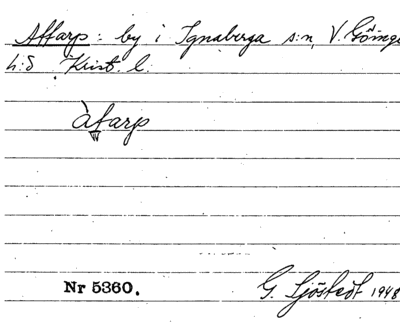 Affarp: by i Ignaberga s:n, V. Göinge
h:d Krist. l.
àfarp
Nr 5360.
G. Sjöstedt 1948